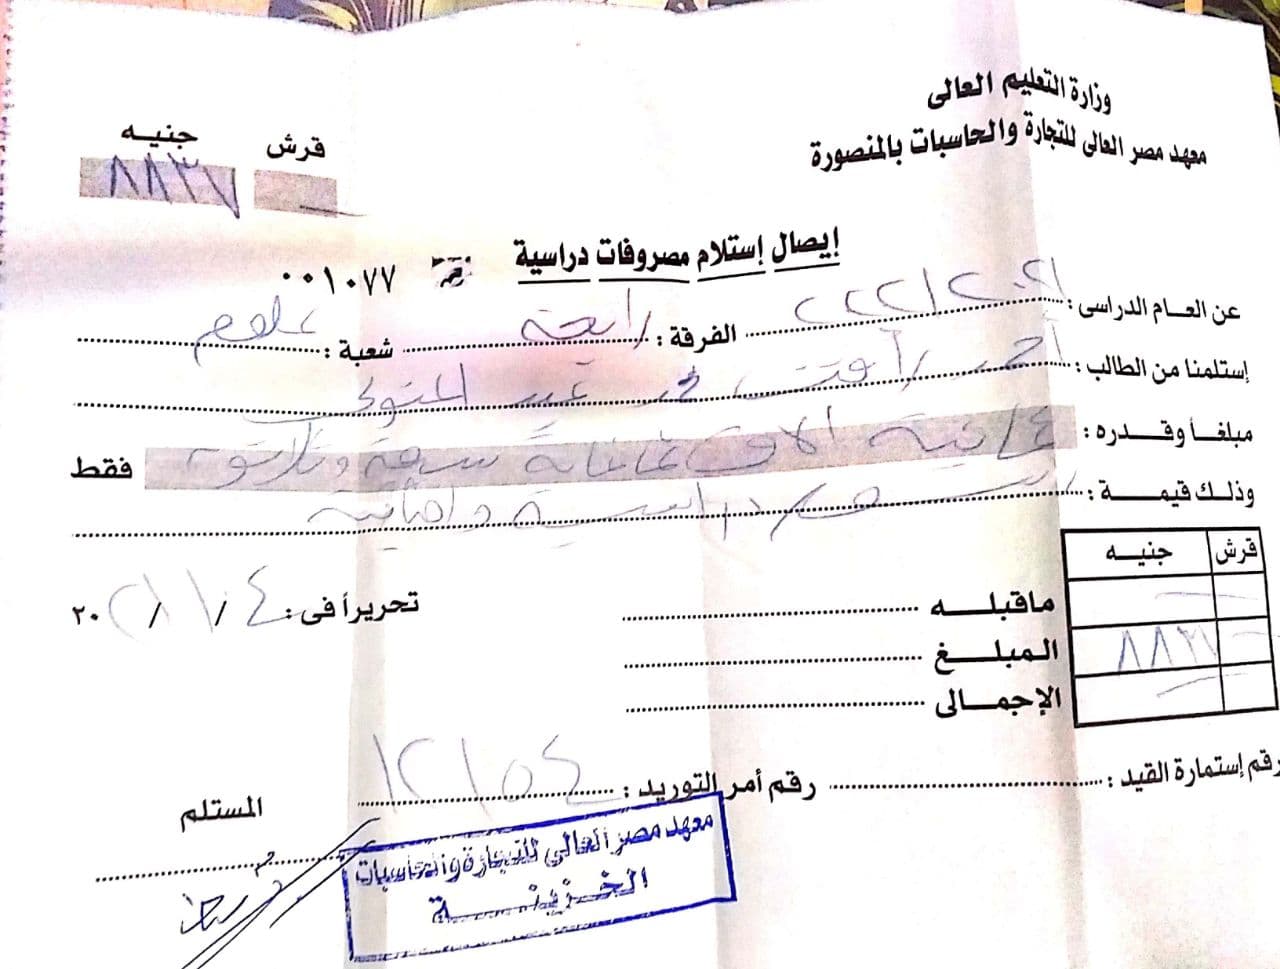 وزارة التعليم العالى
معهد مصر العالى للتجارة والحاسبات بالمنصورة
قرش جنيه
٨٨٣٧
إيصال إستلام مصروفات دراسية
٠٠١٠٧٧
عن العام الدراسى : ٢٠٢١/٢٠٢٢ الفرقة : رابعة شعبة : علوم
إستلمنا من الطالب : أحمد رأفت عبد المتولى
مبلغاً وقدره : ثمانية الاف ثمانمائة سبعة وثلاثون فقط
وذلك قيمة : دراسية
قرش جنيه
ماقبله
المبلغ ٨٨٣٧
الإجمالى
تحريراً فى : ٤ / ١ / ٢٠٢١
رقم إستمارة القيد : رقم أمر التوريد :
المستلم
معهد مصر العالى للتجارة والحاسبات
الخزينة